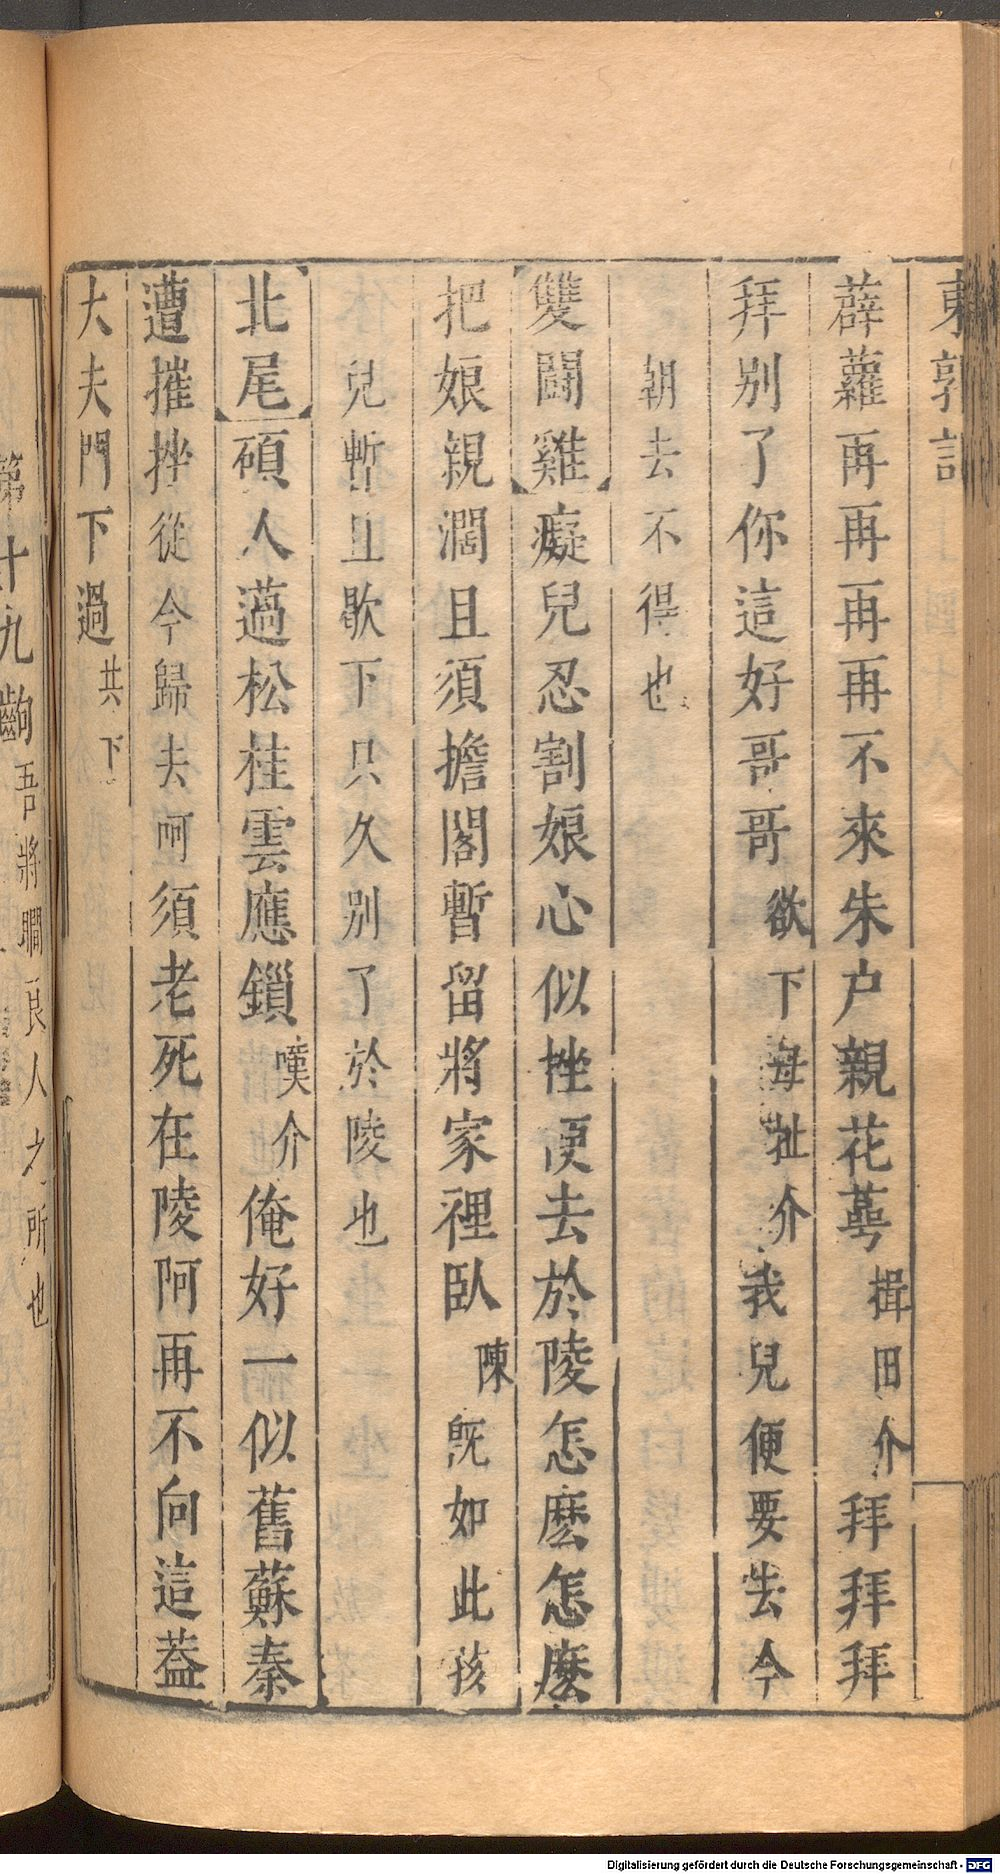 東郭記
薜蘿再再再再不來朱户親花蕚揖田介拜拜拜
拜别了你這好哥哥欲下母扯介我兒便要去今
朝去不得也
雙鬪雞癡兒忍割娘心似挫便去於陵怎麽怎麽
把娘親濶且須擔閣暫留將家裡臥陳旣如此孩
兒暫且歇下只久别了於陵也
北尾碩人薖松桂雲應鎖嘆介俺好一似舊蘇秦
遭摧挫從今歸去呵須老死在陵阿再不向這葢
大夫門下過共下
第十九齣吾將瞷良人之所也
Digitalisierung gefördert durch die Deutsche Forschungsgemeinschaft - DFG